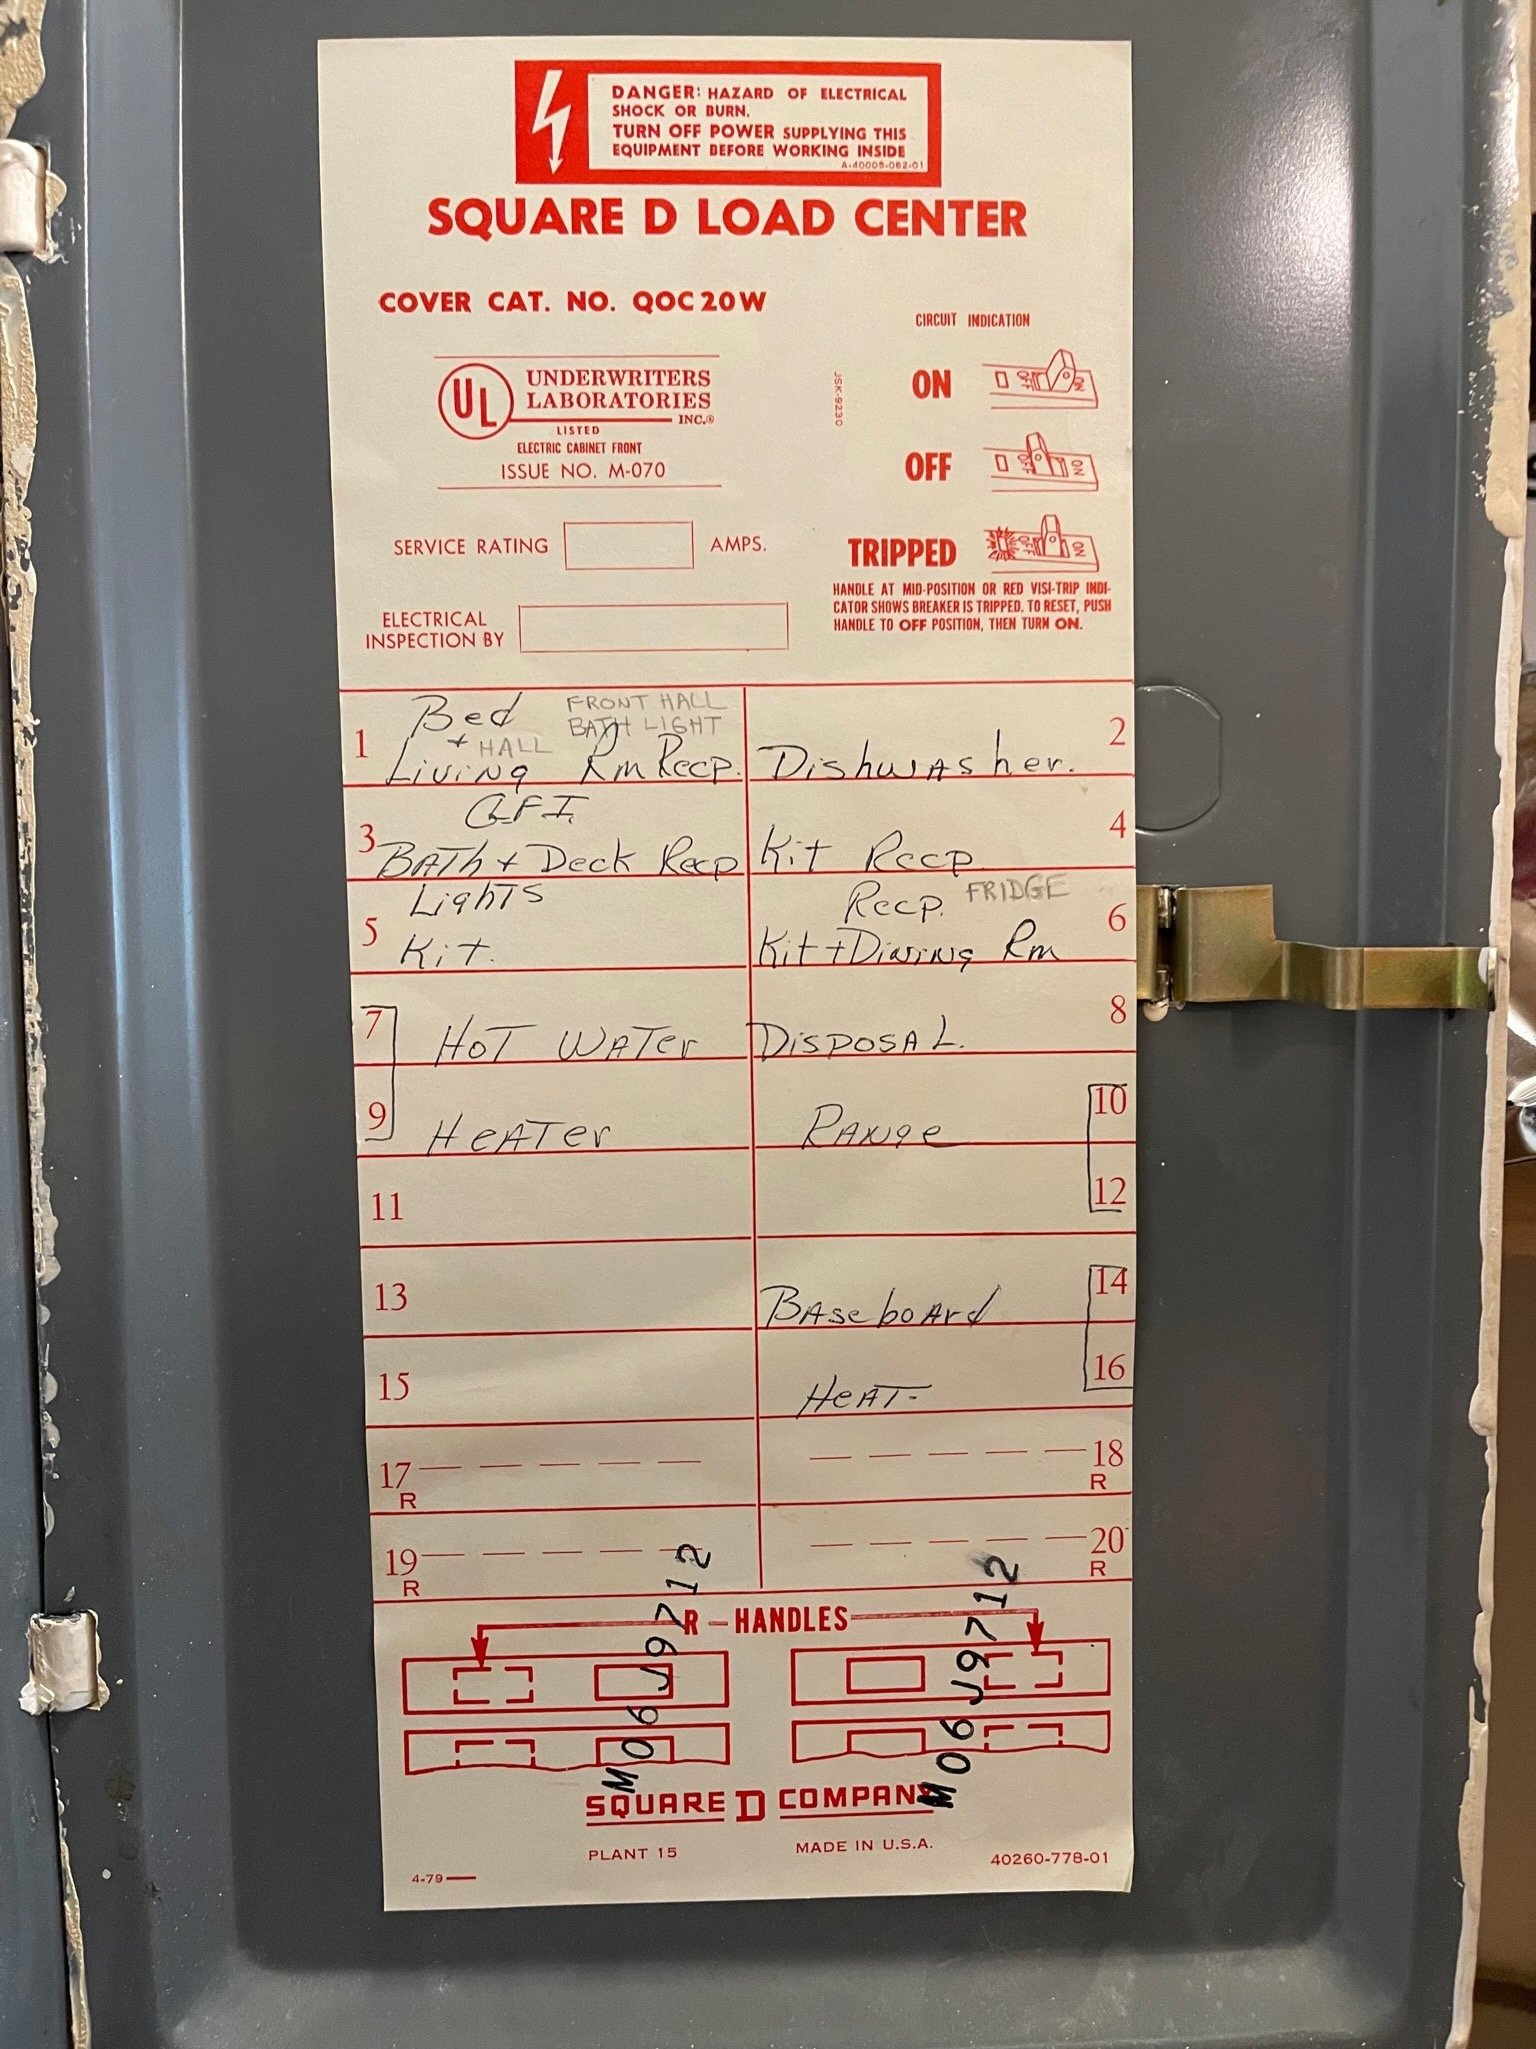 DANGER: HAZARD OF ELECTRICAL
SHOCK OR BURN.
TURN OFF POWER SUPPLYING THIS
EQUIPMENT BEFORE WORKING INSIDE
A-40005-062-01
SQUARE D LOAD CENTER
COVER CAT. NO. QOC20W
UL
UNDERWRITERS
LABORATORIES
INC.®
LISTED
ELECTRIC CABINET FRONT
ISSUE NO. M-070
JSK-9230
CIRCUIT INDICATION
ON OFF ON
OFF OFF ON
TRIPPED OFF ON
HANDLE AT MID-POSITION OR RED VISI-TRIP INDI-
CATOR SHOWS BREAKER IS TRIPPED. TO RESET, PUSH
HANDLE TO OFF POSITION, THEN TURN ON.
SERVICE RATING AMPS.
ELECTRICAL
INSPECTION BY
1 Bed FRONT HALL
BATH LIGHT
+ HALL
Living Rm Recp.
2 Dishwasher.
3 G.F.I.
BATH + Deck Recp
4 Kit Recp
5 Lights
Kit.
6 Recp. FRIDGE
Kit + Dining Rm
7 HOT WATer
8 DISPOSAL.
9 HeATer
10 RANge
11
12
13
14 BAseboArd
15
16 HeAT-
17 R
18 R
19 R
20 R
R-HANDLES
M06J9712
M06J9712
SQUARE D COMPANY
PLANT 15
MADE IN U.S.A.
4-79
40260-778-01